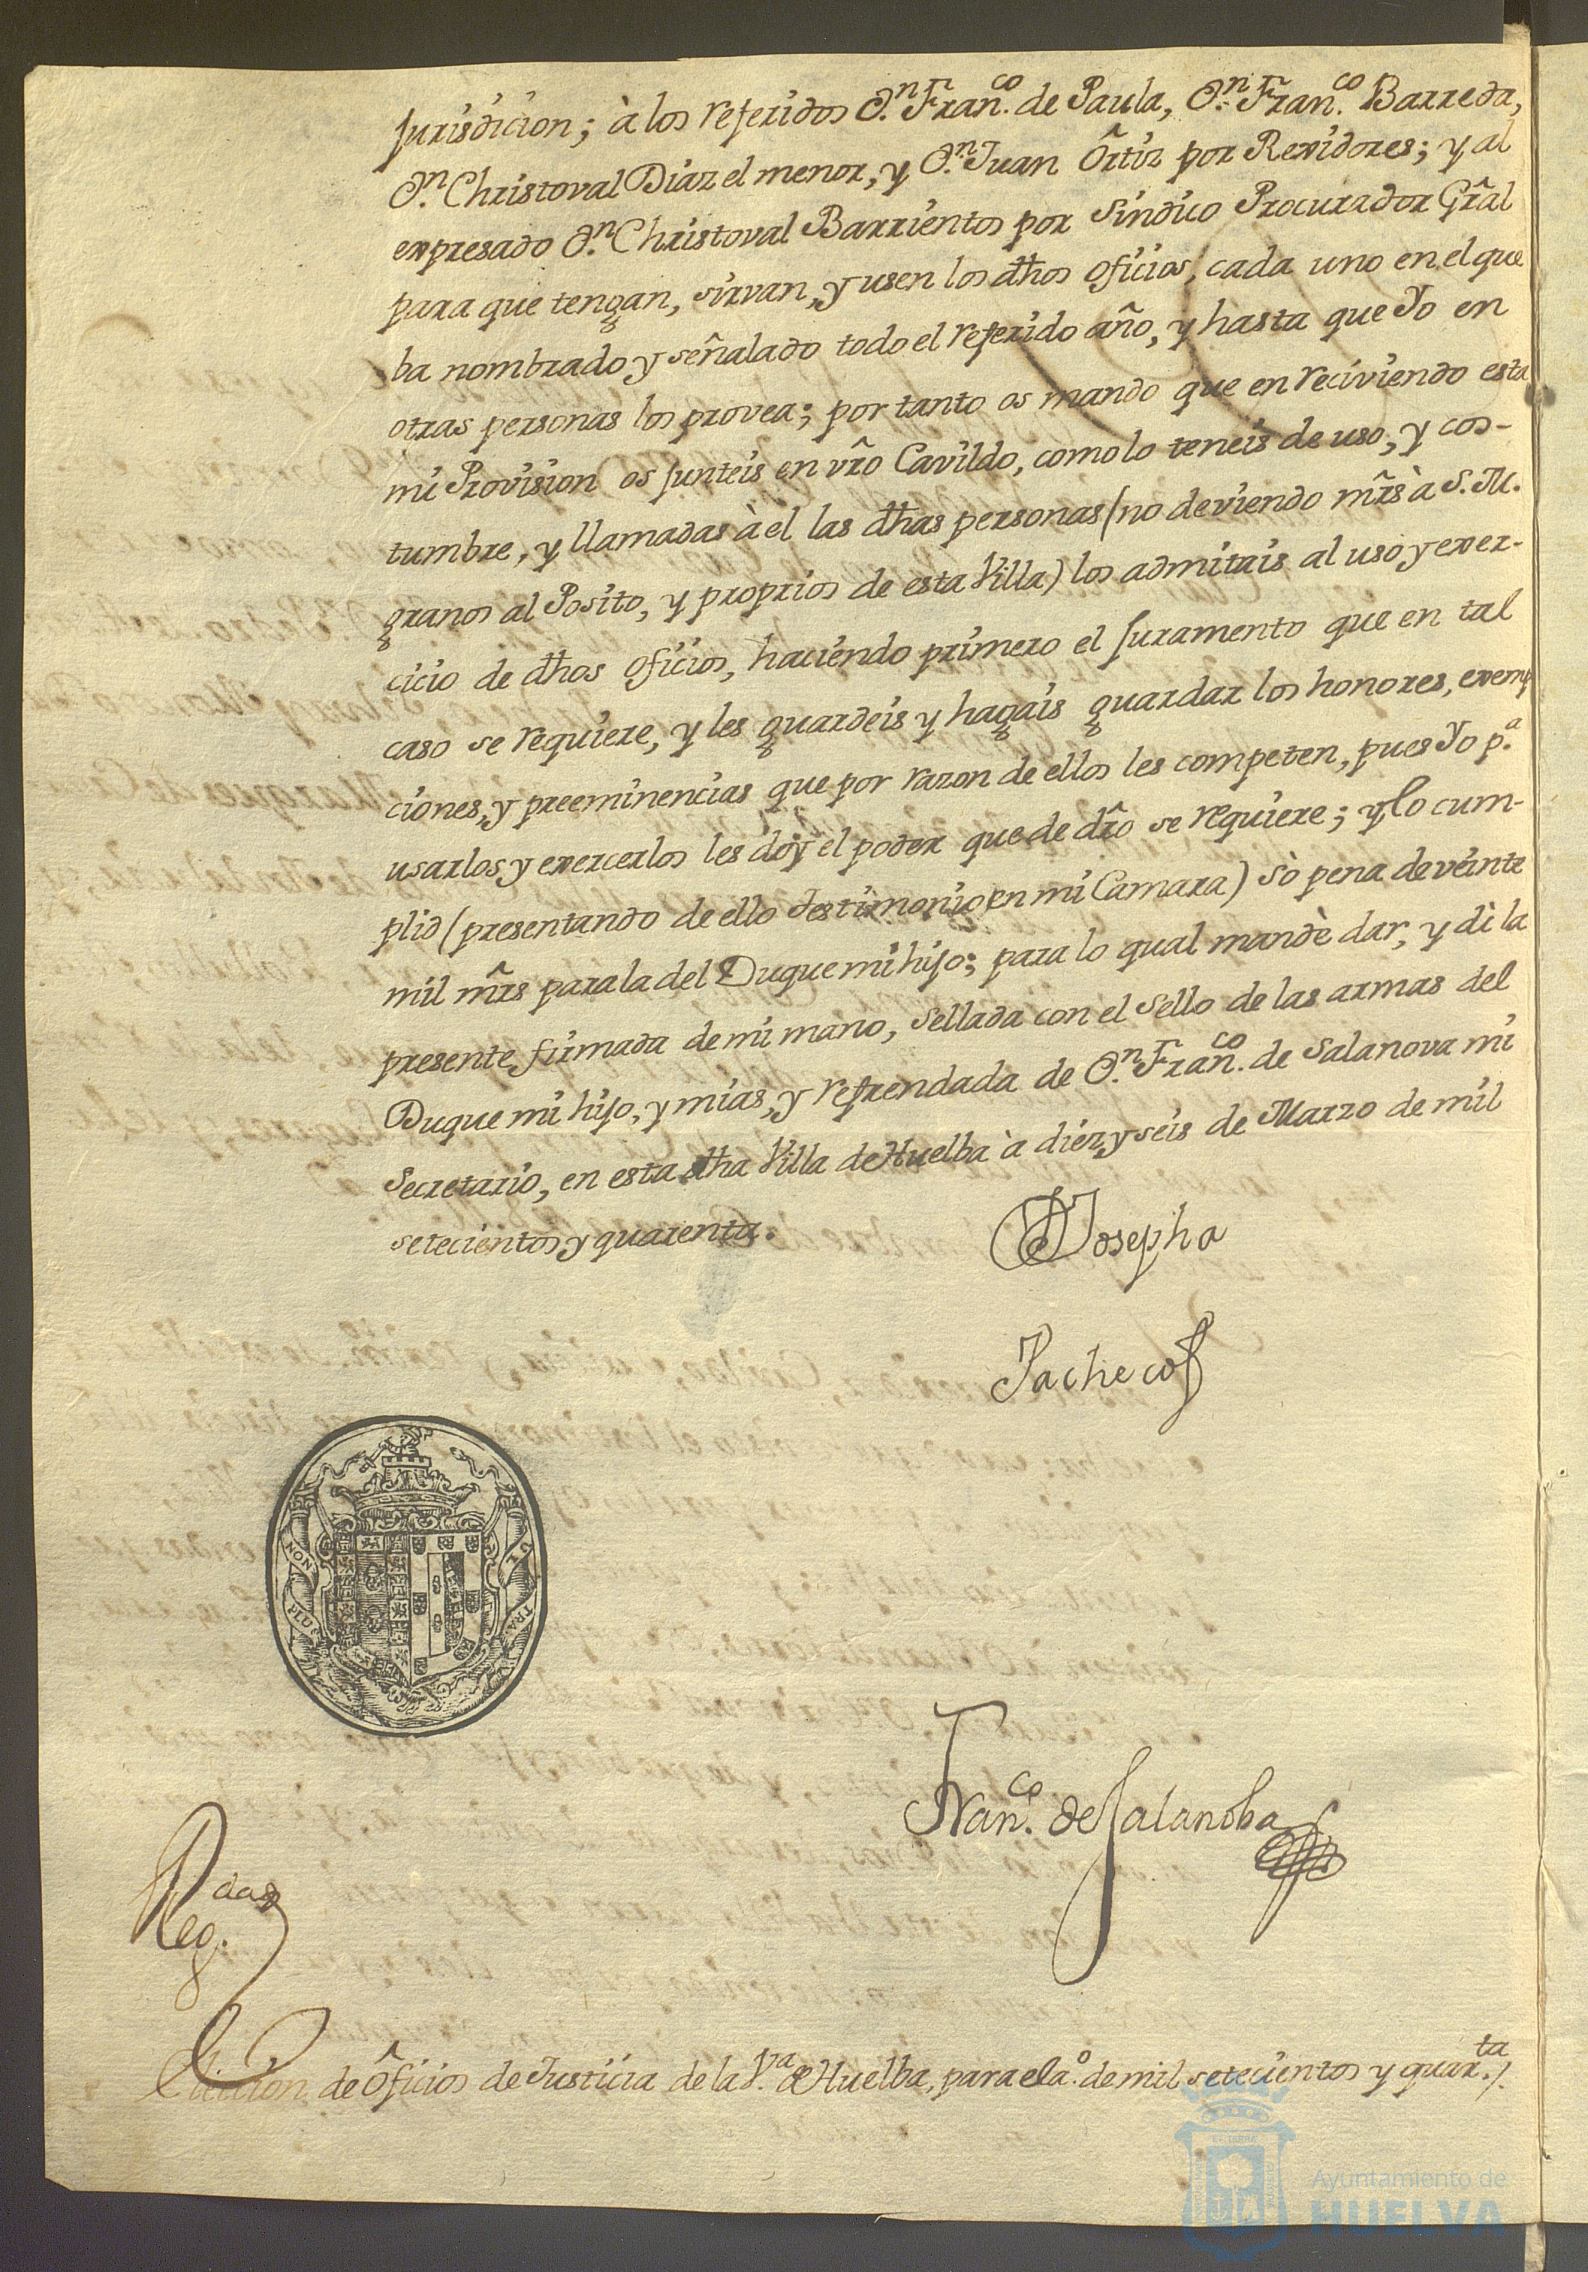 Jurisdicion; à los referidos Dn. Franco. de Paula, Dn. Franco. Barreda,
Dn. Christoval Diaz el menor, y Dn. Juan Ortiz por Rexidores; y al
expresado Dn. Christoval Barrientos por Sindico Procurador Grãl
para que tengan, sirvan, y usen los dhos oficios, cada uno en el que
ba nombrado y señalado todo el referido año, y hasta que Yo en
otras personas los provea; por tanto os mando que en reciviendo esta
mi Provision os junteis en vr̃o Cavildo, como lo teneis de uso, y cos-
tumbre, y llamadas à el las dhas personas (no deviendo mr̃s à S. M.
granos al Posito, y proprios de esta Villa) los admitais al uso y exer-
cicio de dhos oficios, haciendo primero el Juramento que en tal
caso se requiere, y les guardeis y hagais guardar los honores, exemp
ciones, y preeminencias que por razon de ellos les competen, pues Yo pa.
usarlos y exercerlos les doy el poder que de dr̃o se requiere; y lo cum-
plid (presentando de ello testimonio en mi Camara) sò pena de veinte
mil mr̃s para la del Duque mi hijo; para lo qual mandè dar, y dì la
presente firmada de mi mano, sellada con el Sello de las armas del
Duque mi hijo, y mias, y refrendada de Dn. Franco. de Salanova mi
Secretario, en esta dha Villa de Huelba à diez y seis de Marzo de mil
setecientos y quarenta.
Josepha
Pacheco
NON
PLUS
UL
TRA
Franco. de Salanoba
Regdas.
Eleccion de Oficios de Justicia de la Va. de Huelba, para el ao. de mil setecientos y quarta.
Ayuntamiento de
HUELVA